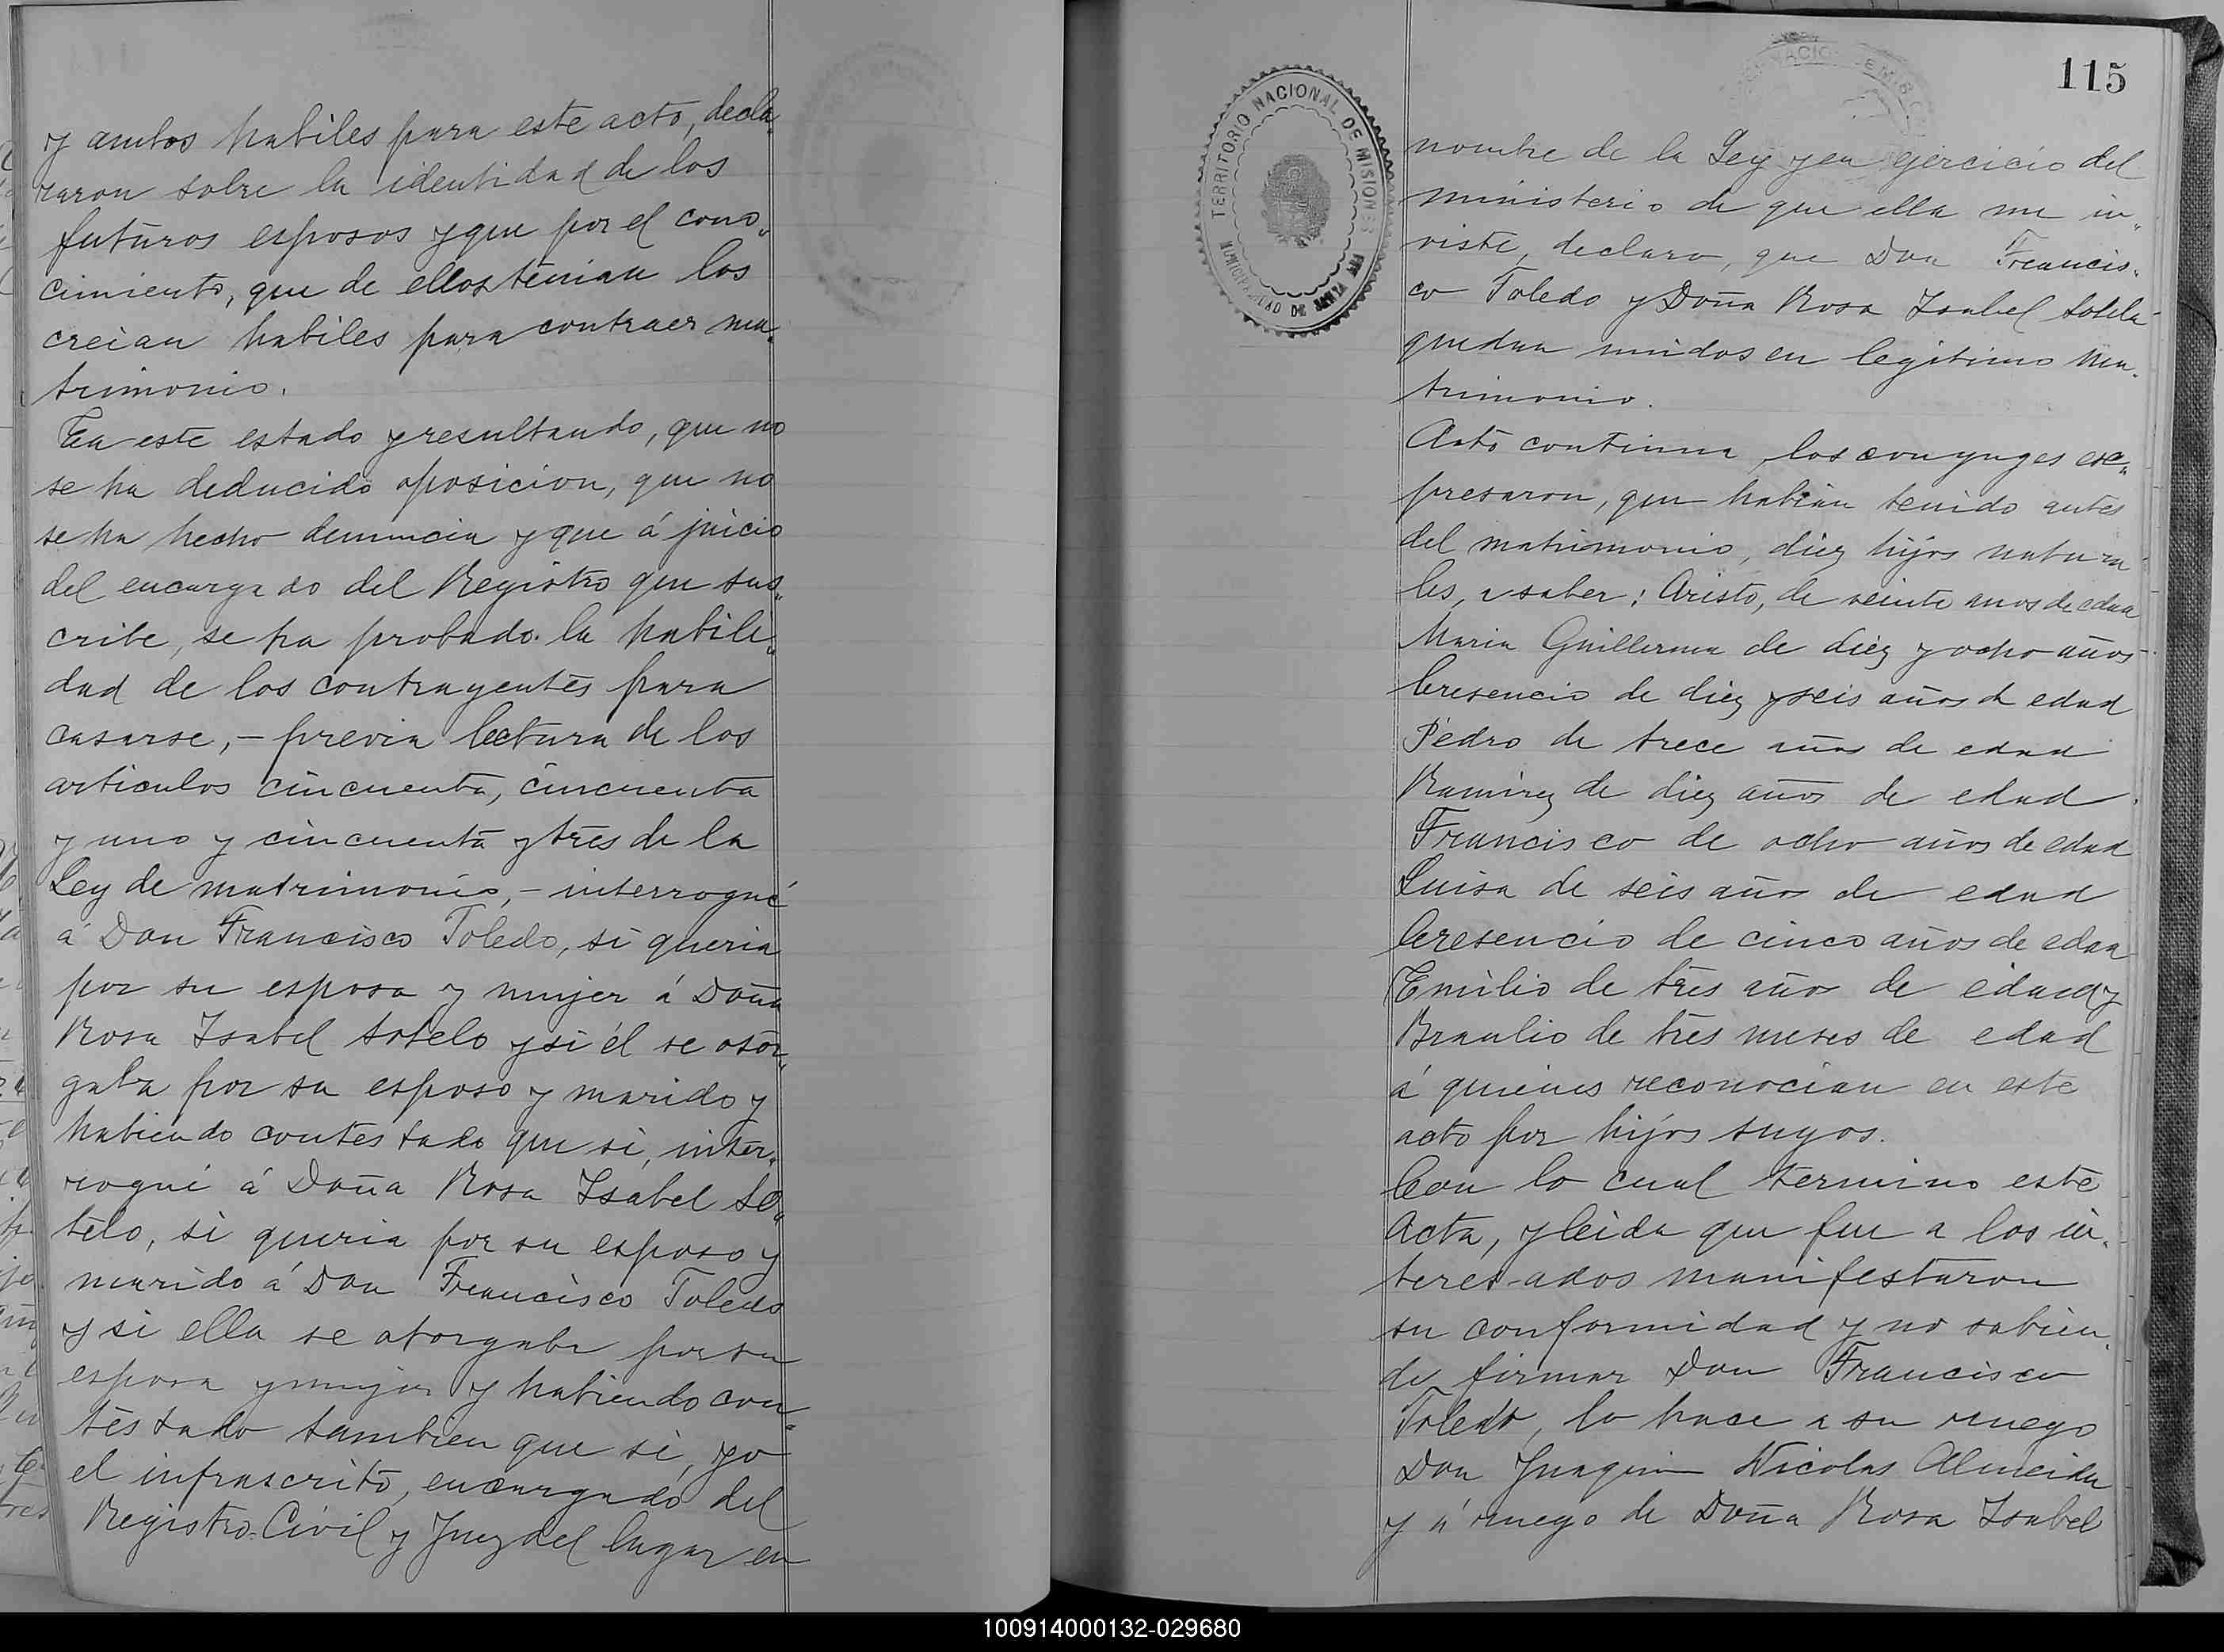 y ambos habiles para este acto, decla„
raron sobre la identidad de los
futuros esposos y que por el cono„
cimiento, que de ellos tenian los
creian habiles para contraer ma„
trimonio.
En este estado y resultando, que no
se ha deducido oposicion, que no
se ha hecho denuncia y que á juicio
del encargado del Registro que sus„
cribe, se ha probado la habili„
dad de los contrayentes para
casarse, – previa lectura de los
articulos cincuenta, cincuenta
y uno y cincuenta y tres de la
Ley de matrimonio, – interrogué
á Don Francisco Toledo, si queria
por su esposa y mujer á Doña
Rosa Isabel Sotelo y si él se otor„
gaba por su esposo y marido y
habiendo contestado que si, inter„
rogué á Doña Rosa Isabel So„
telo, si queria por su esposo y
marido á Don Francisco Toledo
y si ella se otorgaba por su
esposa y mujer y habiendo con„
testado tambien que si, yo
el infrascrito, encargado del
Registro Civil y Juez del lugar en
115
TERRITORIO NACIONAL DE MISIONES
MUNICIPALIDAD DE SANTA ANA
nombre de la Ley y en ejercicio del
ministerio de que ella me in„
viste, declaro, que Don Francis„
co Toledo y Doña Rosa Isabel Sotelo
quedan unidos en legitimo ma„
trimonio.
Acto continuo, los conyuges ex„
presaron, que habian tenido antes
del matrimonio, diez hijos natura„
les, a saber: Aristo, de veinte anos de edad
Maria Guillerma de diez y ocho años
Cresencio de diez y seis años de edad
Pedro de trece años de edad
Ramirez de diez años de edad.
Francisco de ocho años de edad
Luisa de seis años de edad
Cresencio de cinco años de edad
Emilio de tres años de edad y
Braulio de tres meses de edad
á quienes reconocian en este
acto por hijos suyos.
Con lo cual termino este
Acta, y leida que fue a los in„
teresados manifestaron
su conformidad y no sabien„
do firmar Don Francisco
Toledo, lo hace a su ruego
Don Juaquin Nicolas Almeida
y á ruego de Doña Rosa Isabel
100914000132-029680